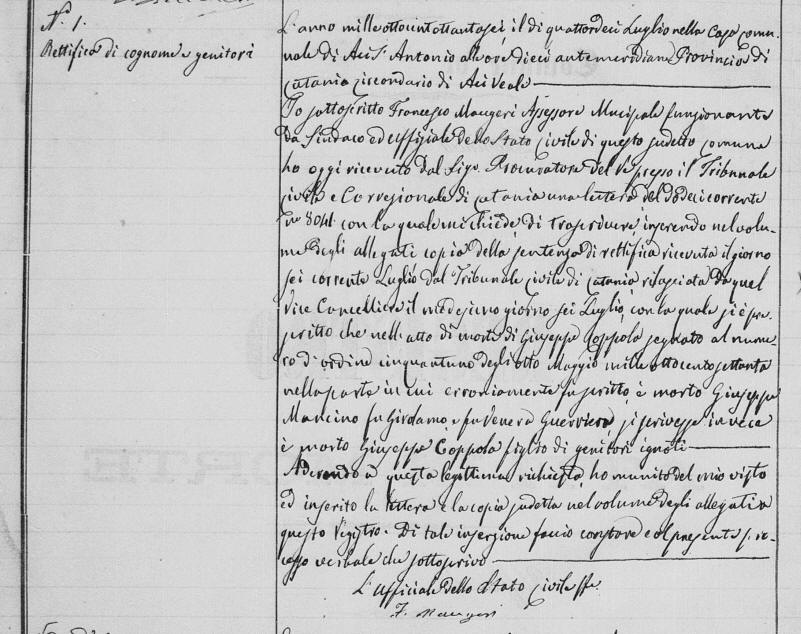 N.° 1.
Rettifica di cognome e genitori
L'anno mille ottocento ottantasei, il dì quattordici Luglio nella Casa comu-
nale di Aci S. Antonio alle ore dieci antemeridiane Provincia di
Catania circondario di Aci Reale
Io sottoscritto Francesco Maugeri Assessore Municipale funzionante
da Sindaco ed Uffiziale dello Stato Civile di questo sudetto comune
ho oggi ricevuto dal Sig. Procuratore del Re presso il Tribunale
civile e Correzionale di Catania una lettera del Dodici corrente
N.° 8041 con la quale mi chiede di trascrivere, inserendo nel volu-
me degli allegati copia della sentenza di rettifica ricevuta il giorno
sei corrente Luglio dal Tribunale civile di Catania rilasciata da quel
Vice Cancelliere il medesimo giorno sei Luglio, con la quale si è pre-
scritto che nell'atto di morte di Giuseppe Coppola segnato al nume-
ro d'ordine cinquantuno degli otto Maggio mille ottocento settanta
nella parte in cui erroniamente fu scritto, è morto Giuseppe
Mancino fu Girolamo e fu Venera Guerriera, si scrivesse invece
è morto Giuseppe Coppola figlio di genitori ignoti
Aderendo a questa legittima richiesta, ho munito del mio visto
ed inserito la lettera e la copia sudetta nel volume degli allegati a
questo Registro. Di tale inserzione faccio constare col presente pro-
cesso verbale che sottoscrivo
L'ufficiale dello Stato Civile ffe.
F. Maugeri